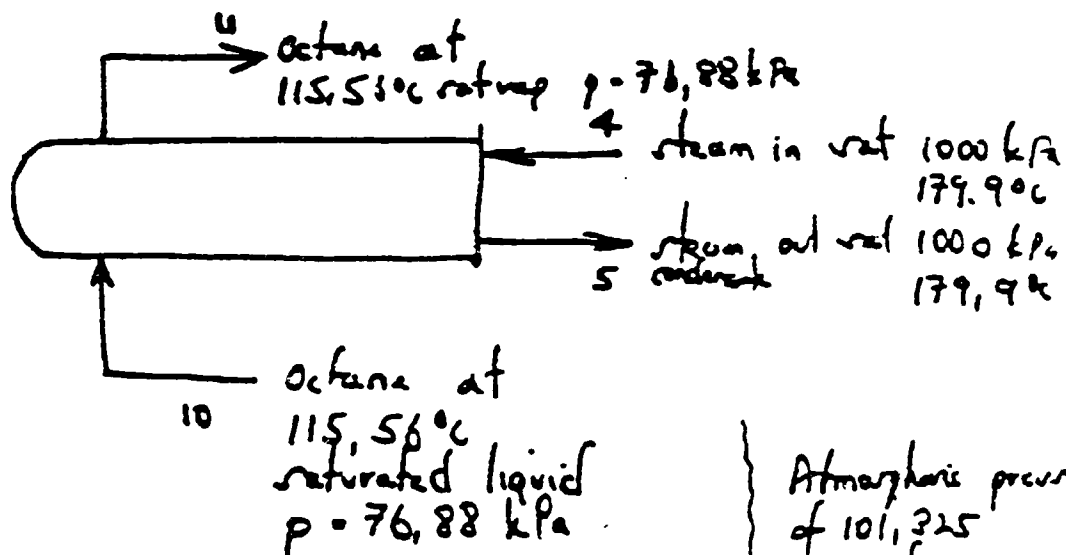 11
octane at
115,56°C sat vap p = 76,88 kPa
4
steam in sat 1000 kPa
179.9°C
steam out sat 1000 kPa
condensate
5
179,9°C
octane at
10
115,56°C
saturated liquid
p = 76,88 kPa
Atmospheric
of 101,325